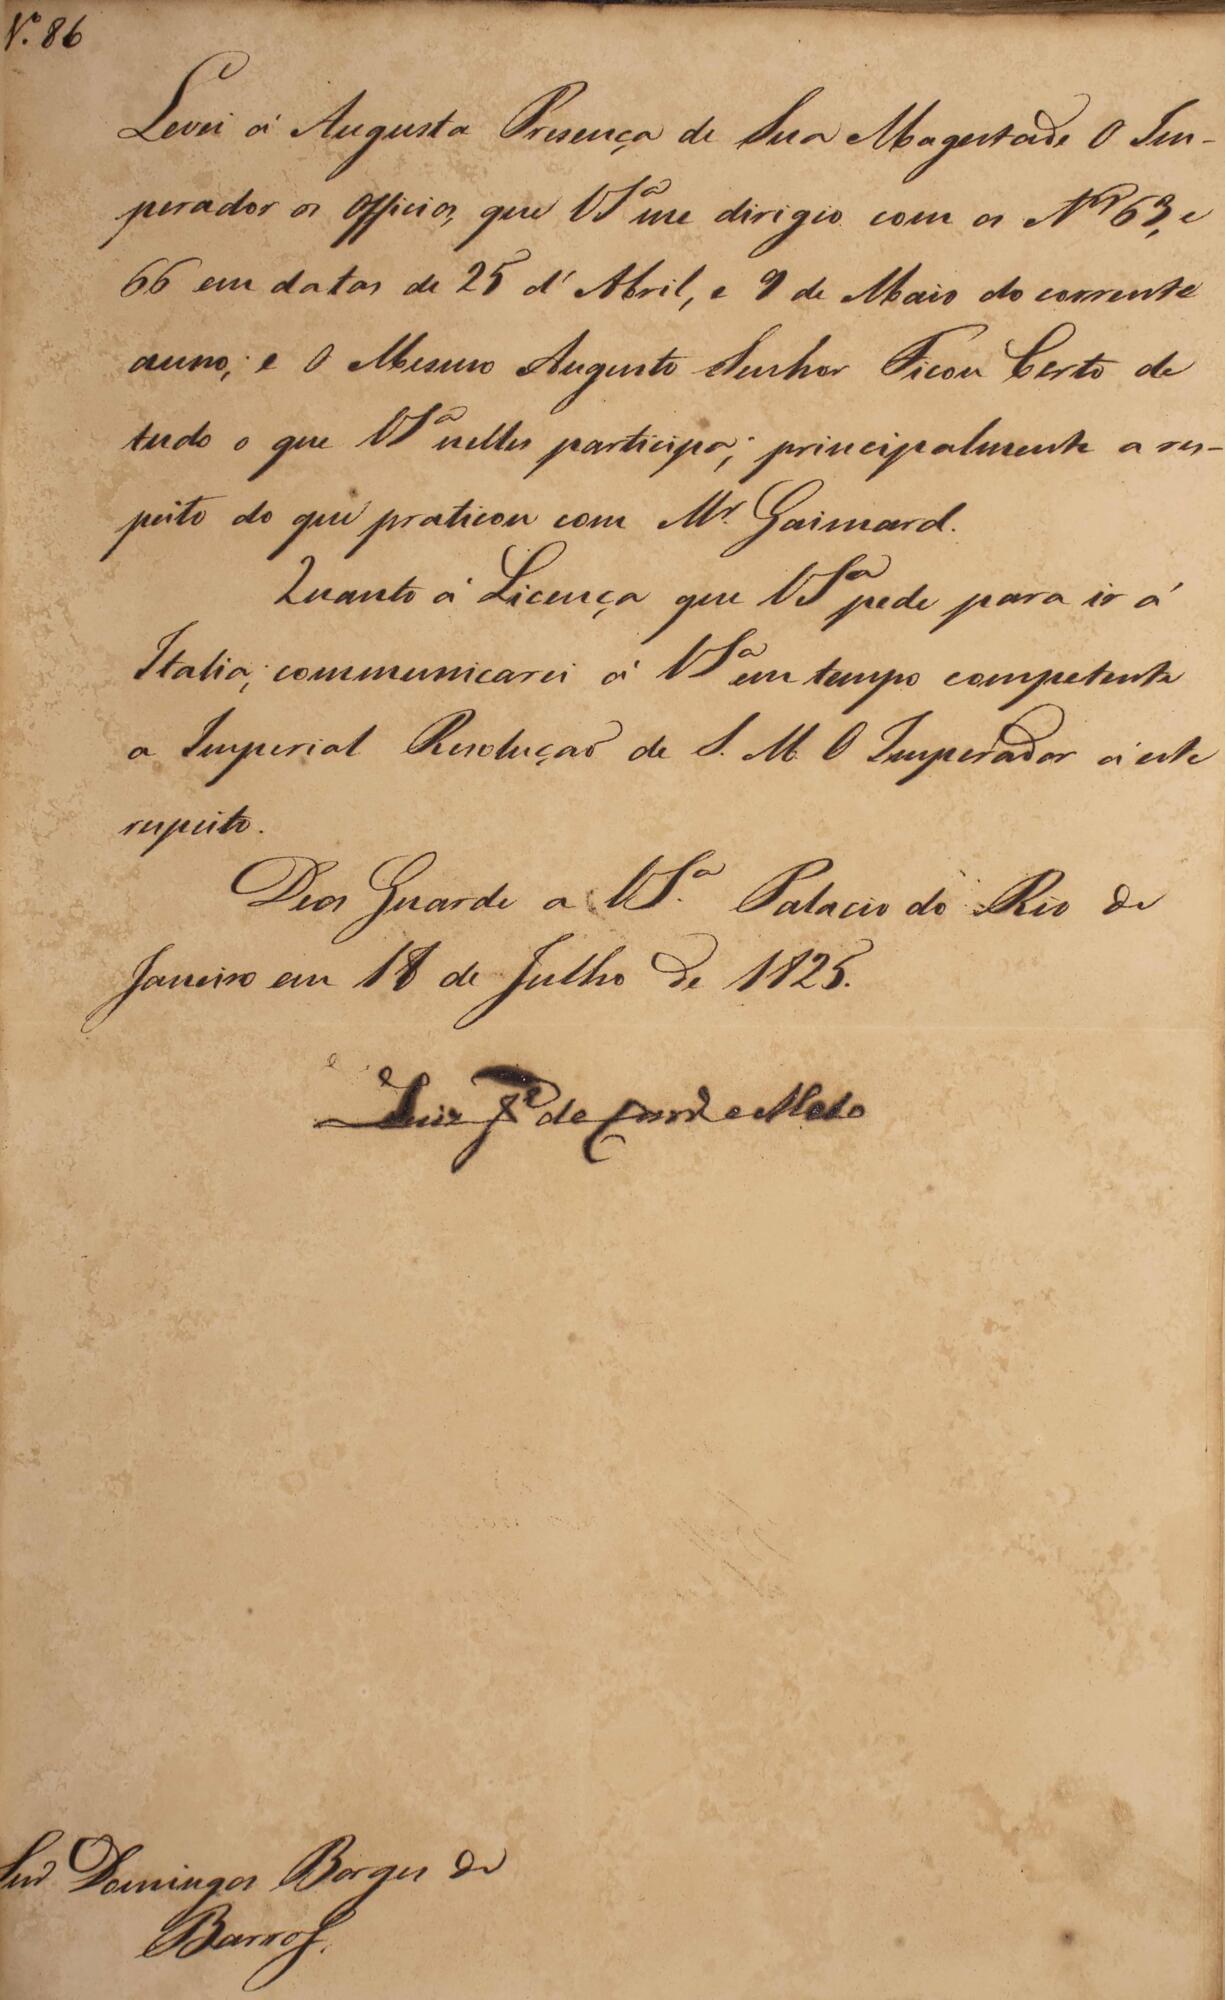 Nº. 86
Levei á Augusta Presença de Sua Magestade O Im-
perador os Officios, que VSª me dirigio com os Nos 63, e
66 em datas de 25 d'Abril, e 9 de Maio do corrente
anno; e O Mesmo Augusto Senhor Ficou Certo de
tudo o que VSª nelles participa; principalmente a res-
peito do que praticou com Mr. Gaimard.
Quanto á Licença que VSª pede para ir á
Italia; communicarei á VSª em tempo competente
a Imperial Resolução de S. M. O Imperador á este
respeito.
Deos Guarde a VS.ª Palacio do Rio de
Janeiro em 18 de Julho de 1825.
Luiz Je de Carvº e Mello
Snr Domingos Borges de
Barros.